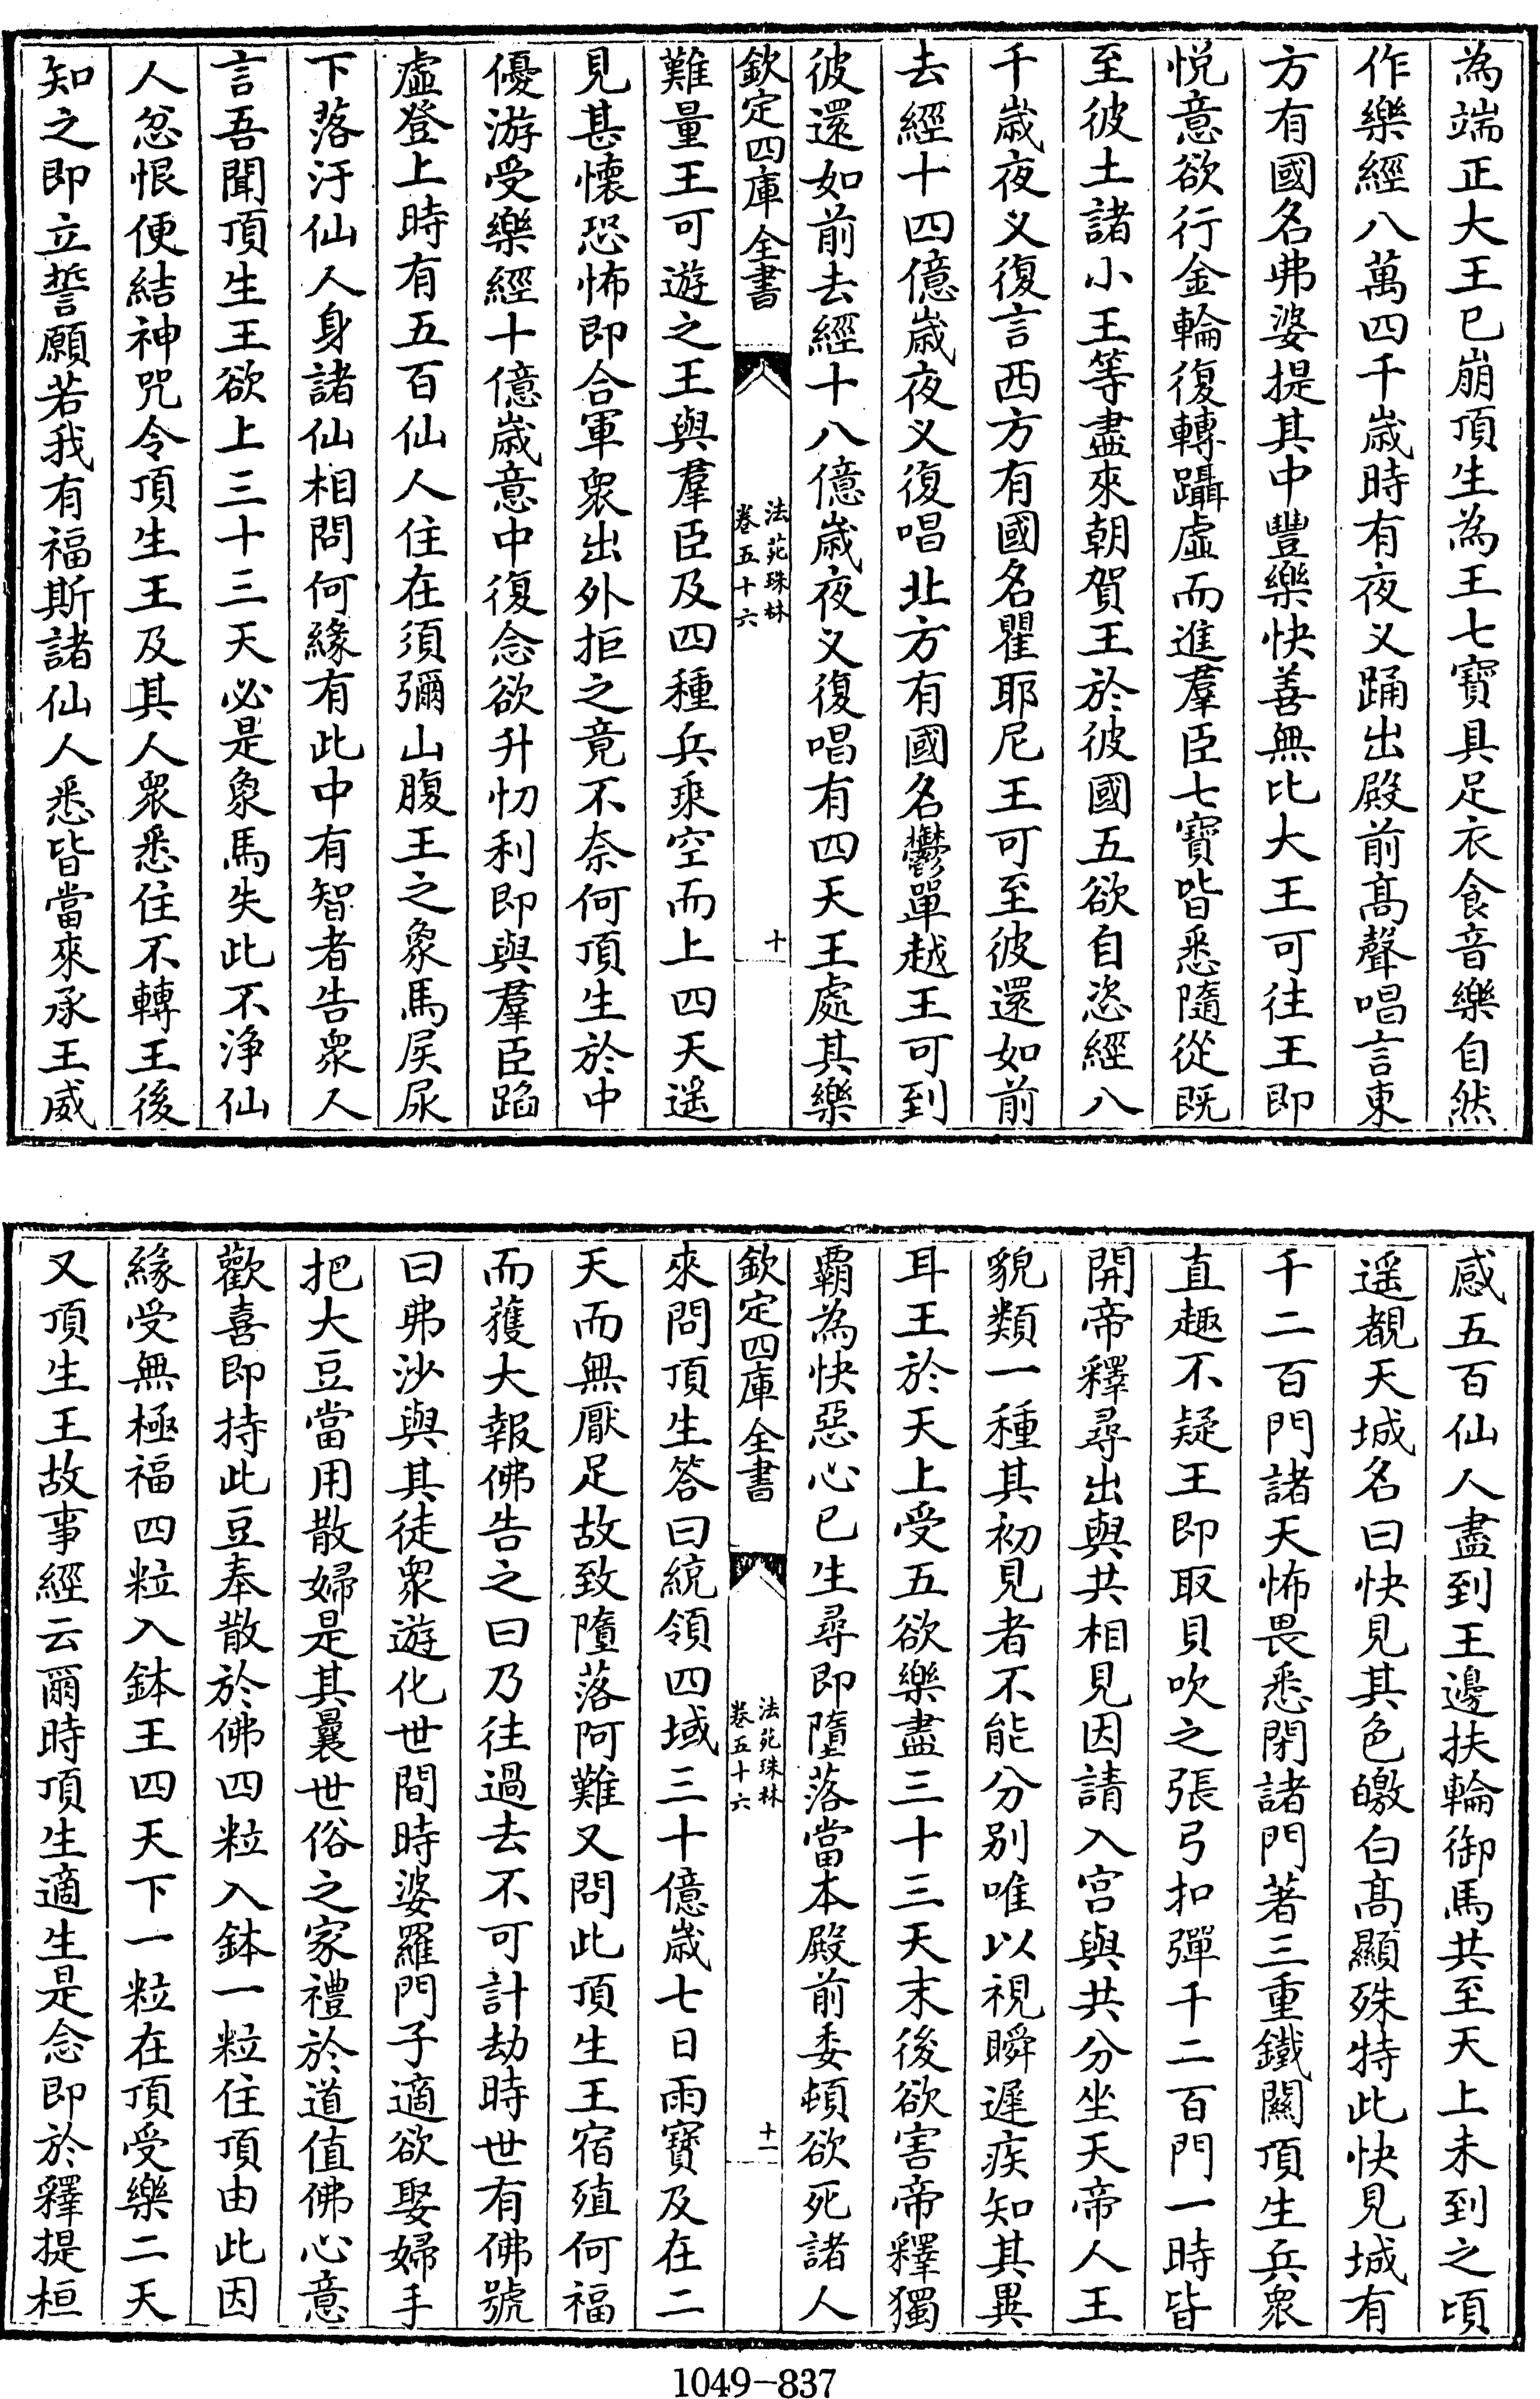 為端正大王已崩頂生為王七寶具足衣食音樂自然
作樂經八萬四千歲時有夜义踊出殿前髙聲唱言東
方有國名弗婆提其中豐樂快善無比大王可往王即
悦意欲行金輪復轉躡虛而進羣臣七寶皆悉隨從既
至彼土諸小王等盡來朝賀王於彼國五欲自恣經八
千歲夜义復言西方有國名瞿耶尼王可至彼還如前
去經十四億歲夜义復唱北方有國名鬱單越王可到
彼還如前去經十八億歲夜义復唱有四天王處其樂
欽定四庫全書
法苑珠林
卷五十六
十
難量王可遊之王與羣臣及四種兵乘空而上四天遥
見甚懷恐怖即合軍衆出外拒之竟不奈何頂生於中
優游受樂經十億歲意中復念欲升忉利即與羣臣蹈
虛登上時有五百仙人住在須彌山腹王之象馬屎尿
下落汙仙人身諸仙相問何緣有此中有智者告衆人
言吾聞頂生王欲上三十三天必是象馬失此不淨仙
人忿恨便結神咒令頂生王及其人衆悉住不轉王後
知之即立誓願若我有福斯諸仙人悉皆當來承王威
感五百仙人盡到王邊扶輪御馬共至天上未到之頃
遥覩天城名曰快見其色皦白髙顯殊特此快見城有
千二百門諸天怖畏悉閉諸門著三重鐵關頂生兵衆
直趣不疑王即取貝吹之張弓扣彈千二百門一時皆
開帝釋尋出與共相見因請入宫與共分坐天帝人王
貌類一種其初見者不能分别唯以視瞬遲疾知其異
耳王於天上受五欲樂盡三十三天末後欲害帝釋獨
霸為快惡心已生尋即墮落當本殿前委頓欲死諸人
欽定四庫全書
法苑珠林
卷五十六
十一
來問頂生答曰統領四域三十億歲七日雨寶及在二
天而無厭足故致墮落阿難又問此頂生王宿殖何福
而獲大報佛告之曰乃往過去不可計劫時世有佛號
曰弗沙與其徒衆遊化世間時婆羅門子適欲娶婦手
把大豆當用散婦是其曩世俗之家禮於道值佛心意
歡喜即持此豆奉散於佛四粒入鉢一粒住頂由此因
緣受無極福四粒入鉢王四天下一粒在頂受樂二天
又頂生王故事經云爾時頂生適生是念即於釋提桓
1049-837